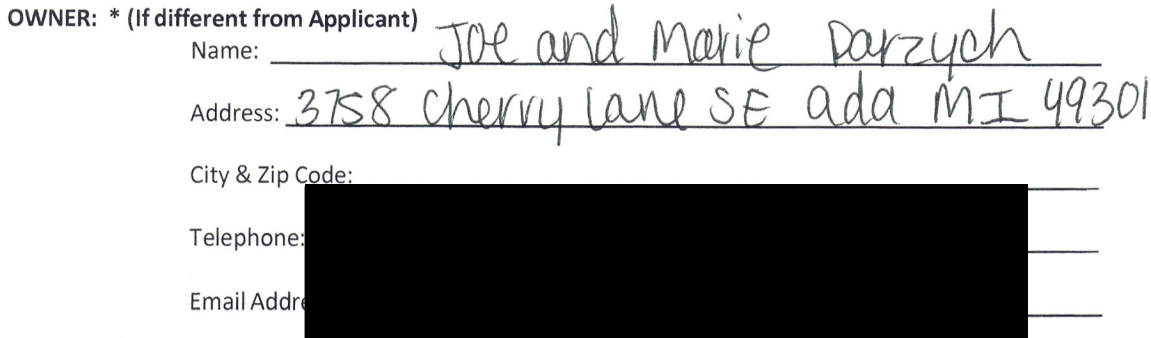 OWNER: * (If different from Applicant)
Name: Joe and Marie Darzych
Address: 3758 cherry lane SE ada MI 49301
City & Zip Code:
Telephone:
Email Addre